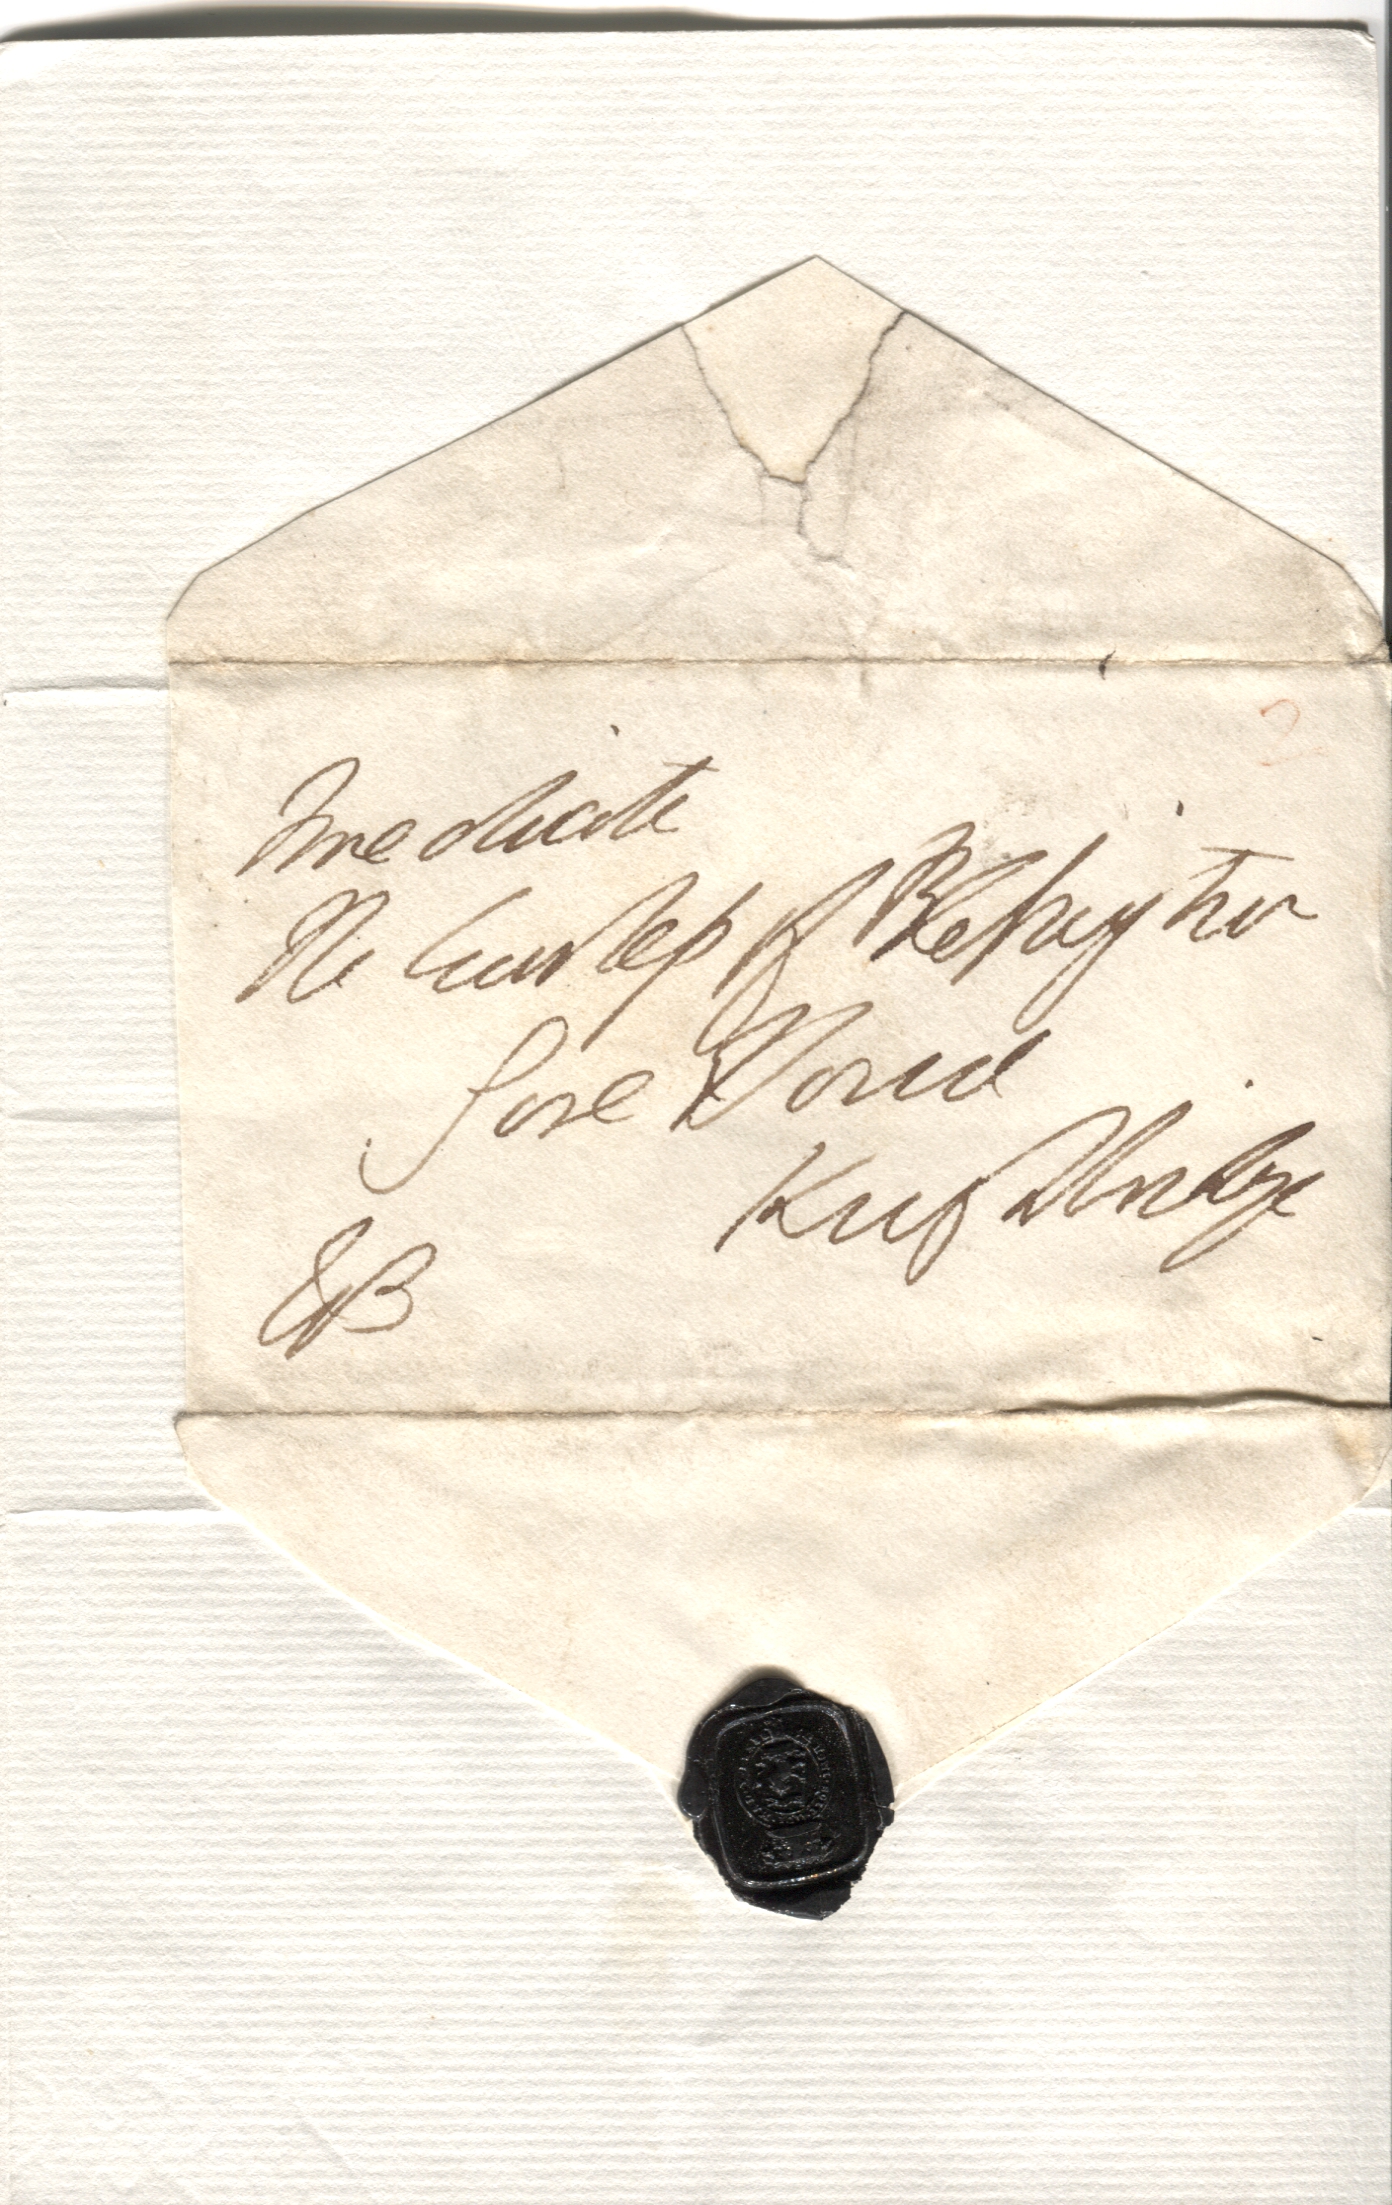 Immediate
The Countess of Blessington
Gore House
EB
2